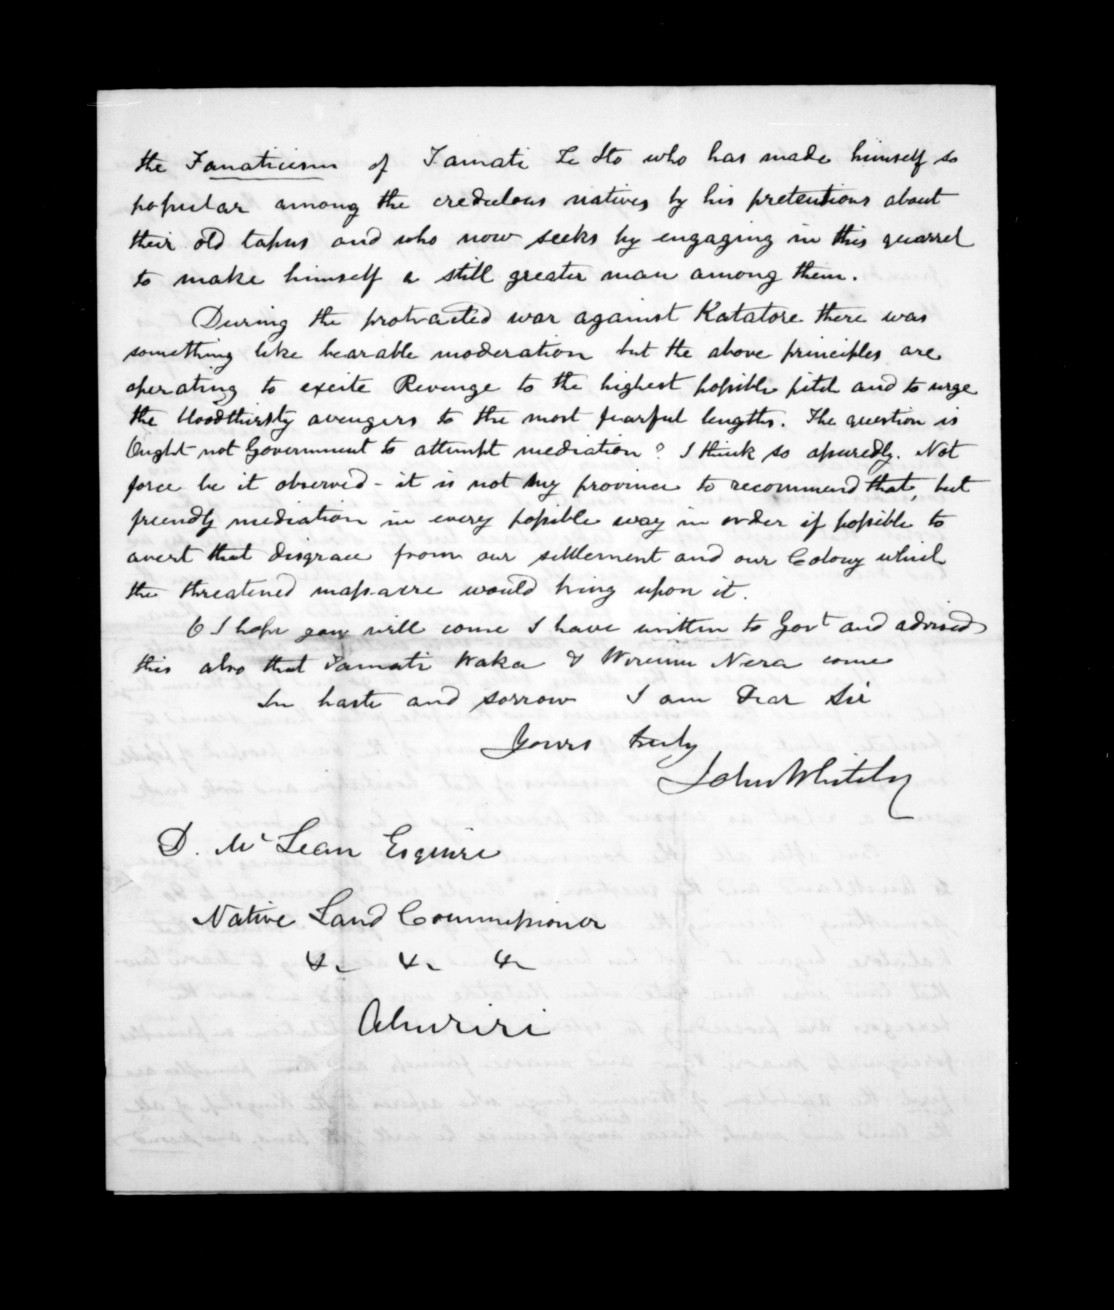 the Fanaticism of Tamati Te Ito who has made himself so
popular among the credulous natives by his pretentions about
their old tapus and who now seeks by engaging in this quarrel
to make himself a still greater man among them.
During the protracted war against Katatore there was
something like bearable moderation but the above principles are
operating to excite Revenge to the highest possible pitch and to urge
the bloodthirsty avengers to the most fearful lengths. The question is
Ought not Government to attempt mediation? I think so assuredly. Not
force be it observed - it is not my province to recommend that but
friendly mediation in every possible way in order if possible to
avert that disgrace from our settlement and our Colony which
the threatened massacre would bring upon it.
O I hope you will come I have written to Govt and advised
this also that Tamati Waka & Wiremu Nera come
In haste and sorrow I am Dear Sir
Yours truly
John Whiteley
D. McLean Esquire
Native Land Commissioner
&c &c &c
Ahuriri